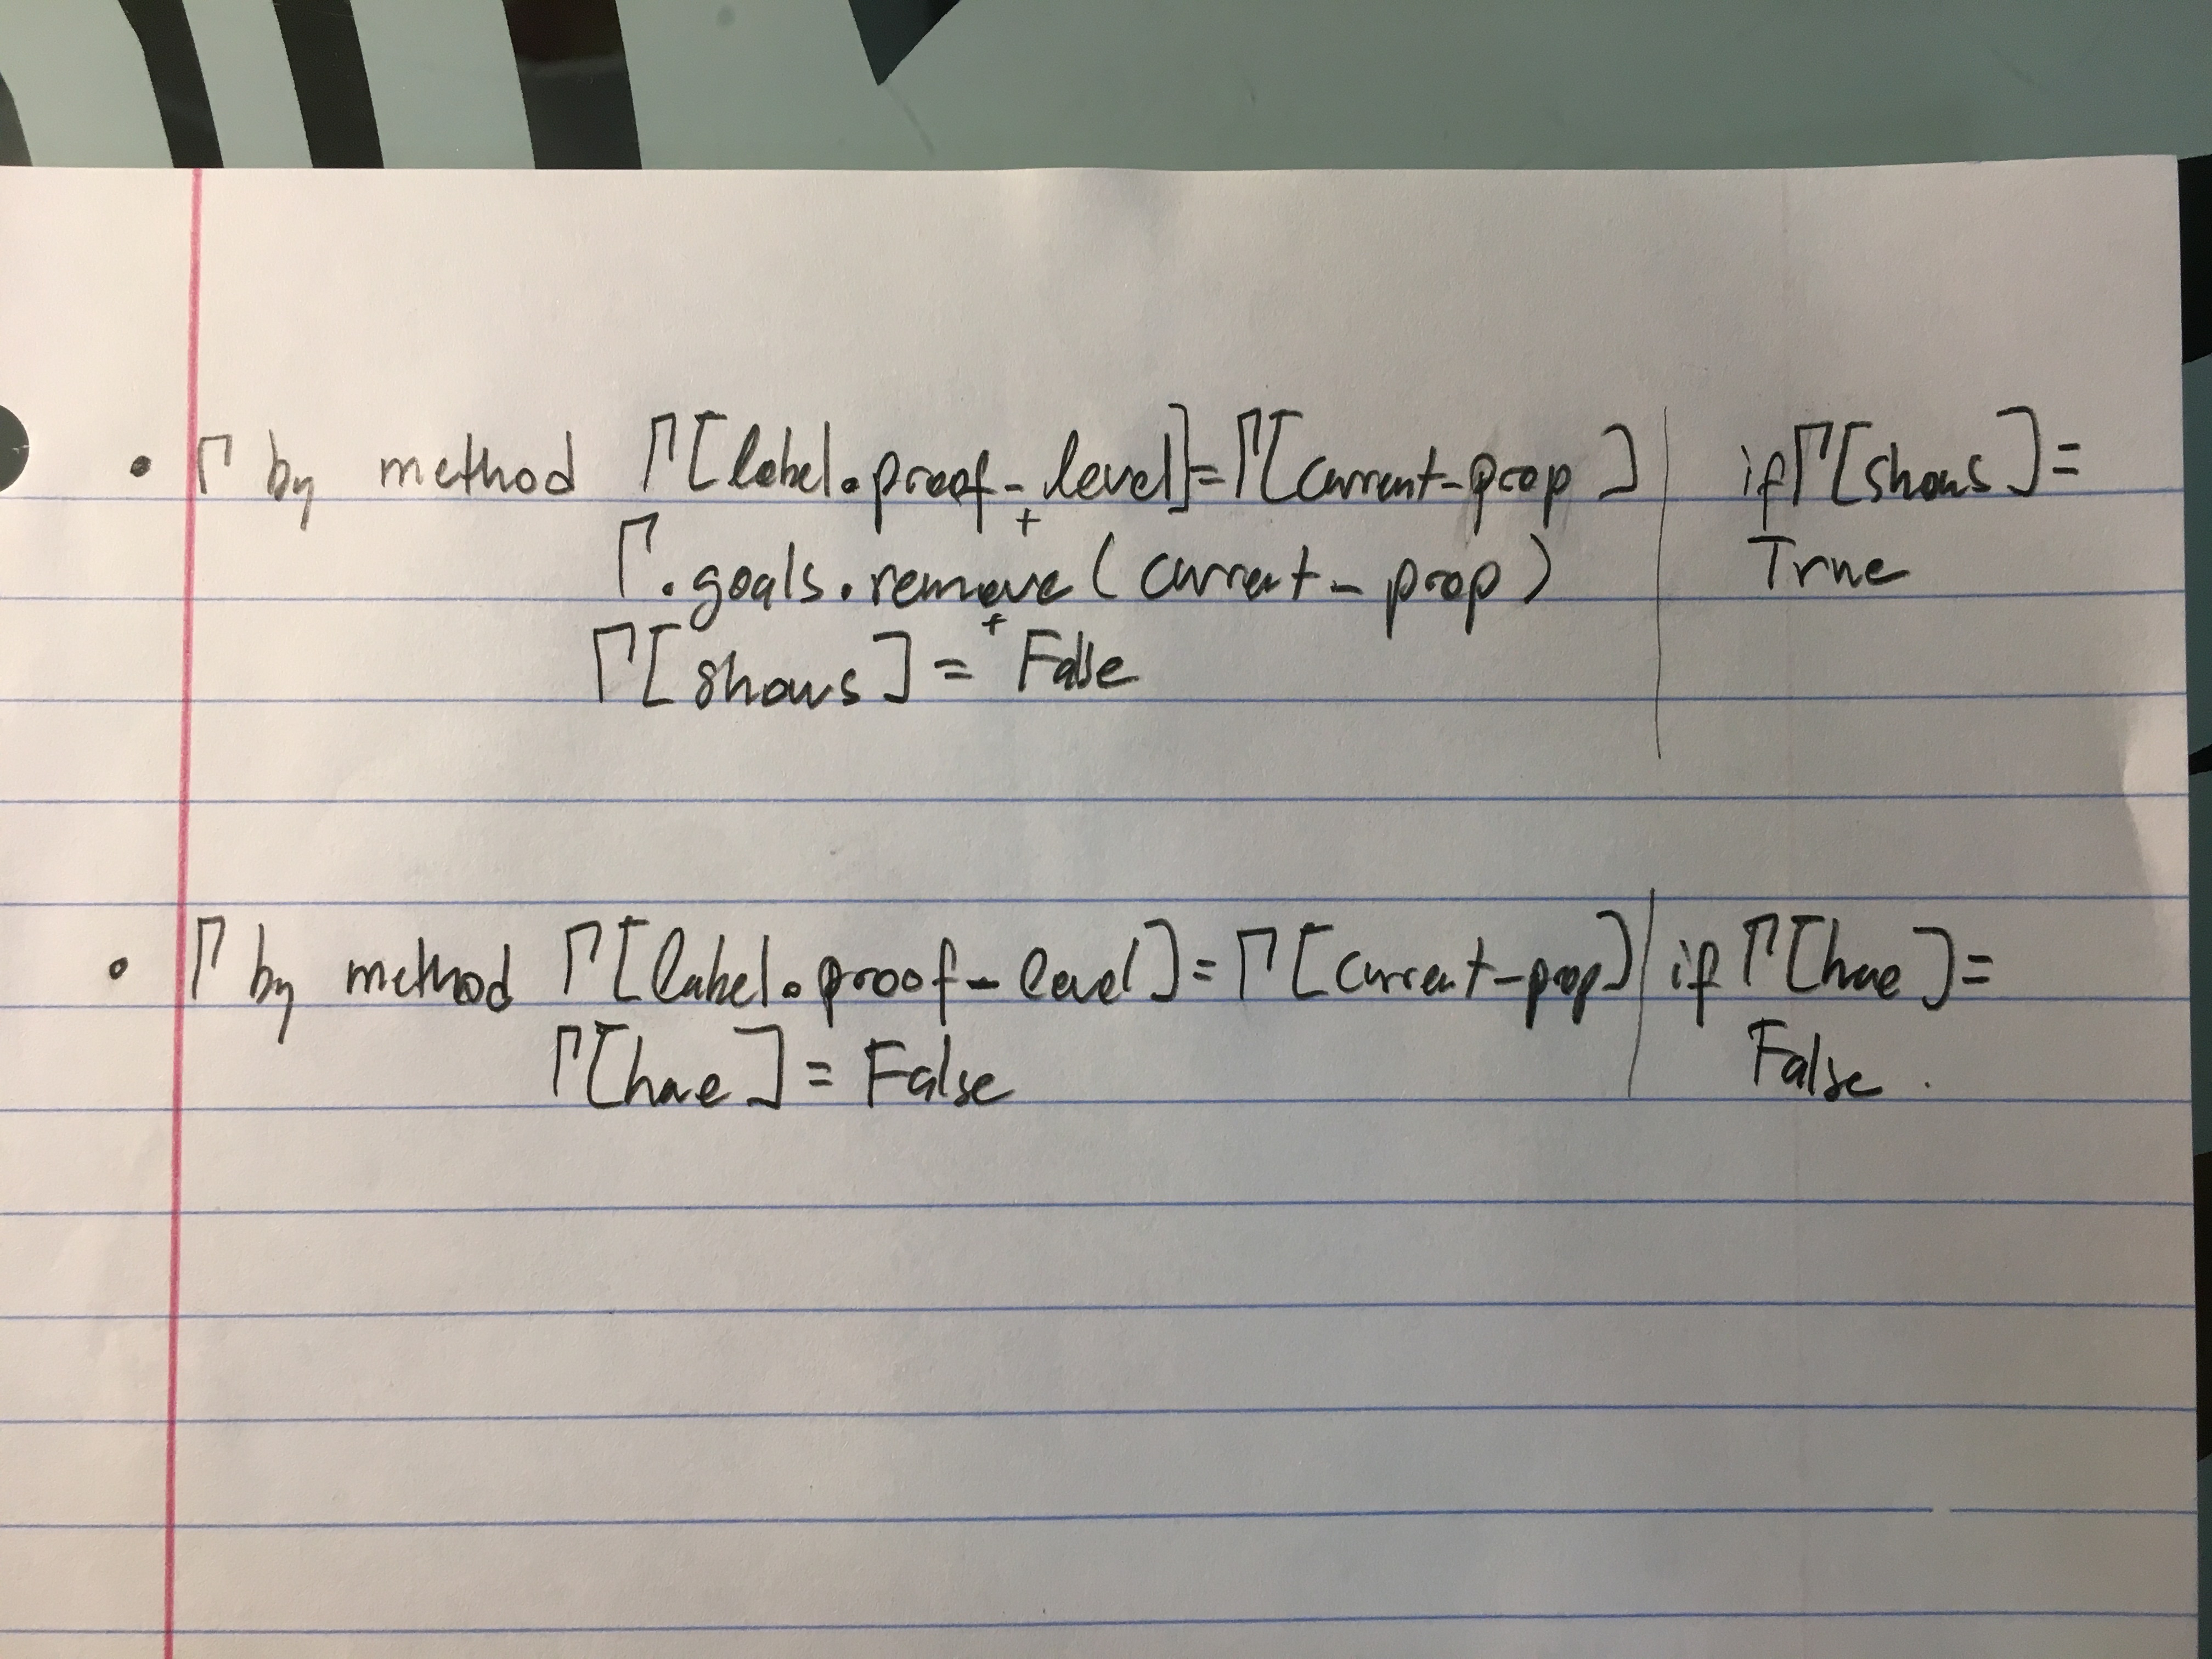 • Γ by method Γ[label.proof-level]=Γ[current-prop] | if Γ[shows]=
+
Γ.goals.remove(current-prop) True
+
Γ[shows] = False
• Γ by method Γ[label.proof-level]=Γ[current-prop] | if Γ[have]=
Γ[have] = False False.